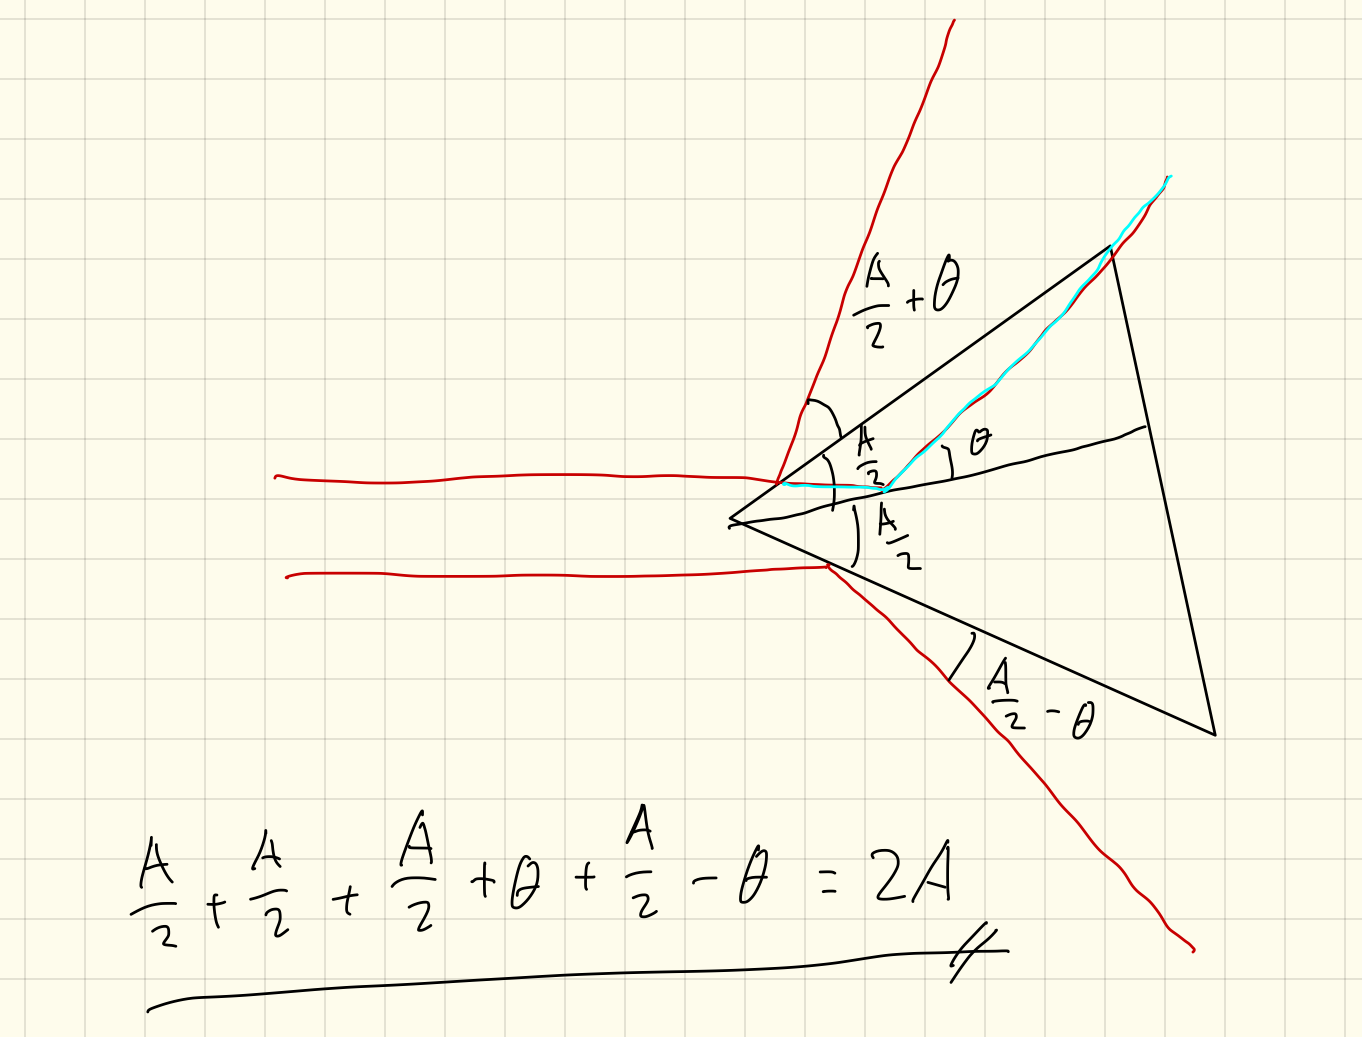 A/2 + θ
A/2
θ
A/2
A/2 - θ
A/2 + A/2 + A/2 + θ + A/2 - θ = 2A